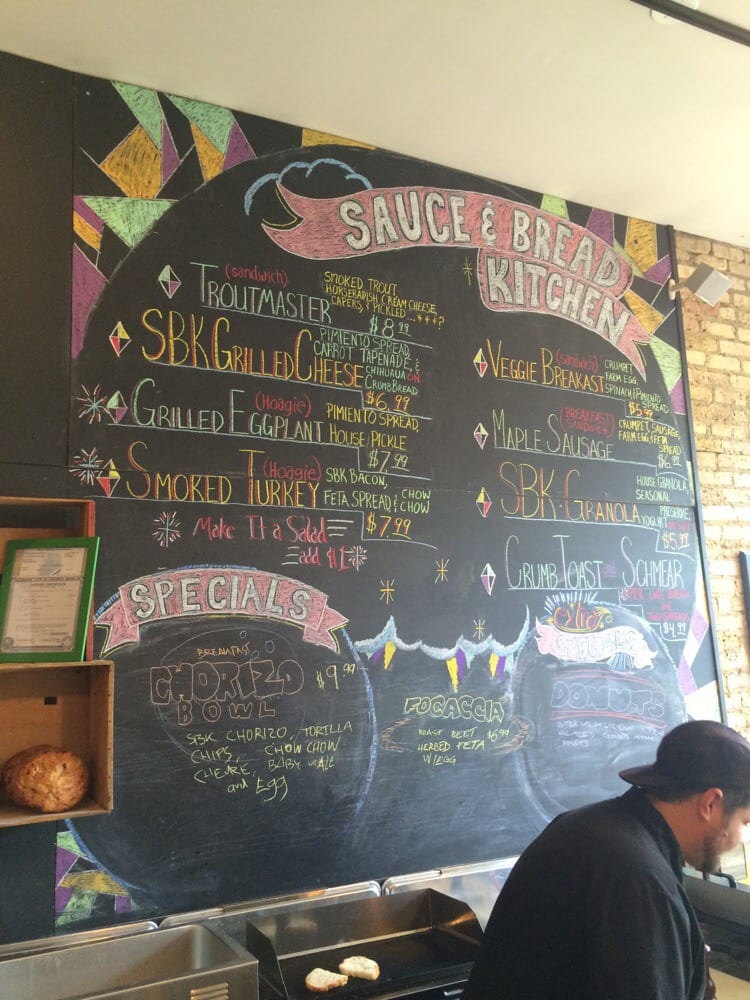 SAUCE & BREAD
KITCHEN
(sandwich)
TROUTMASTER
SMOKED TROUT,
HORSERADISH CREAM CHEESE,
CAPERS, & PICKLED
$8.99
SBK GRILLED CHEESE
PIMIENTO SPREAD,
CARROT TAPENADE, &
CHIHUAUA ON
CRUMBREAD
$6.99
(Hoagie)
GRILLED EGGPLANT
PIMIENTO SPREAD,
HOUSE PICKLE
$7.99
(Hoagie)
SMOKED TURKEY
SBK BACON,
FETA SPREAD, & CHOW
CHOW
$7.99
Make It a Salad
add $1
VEGGIE BREAKAST
(sandwich)
CRUMPET,
FARM EGG,
SPINACH, & PIMIENTO
SPREAD
$5.99
BREAKFAST
SANDWICH
MAPLE SAUSAGE
CRUMPET, SAUSAGE,
FARM EGG, & FETA
SPREAD
$6.99
SBK GRANOLA
HOUSE GRANOLA
SEASONAL
PRESERVE
YOGURT
$5.99
CRUMB TOAST and SCHMEAR
$4.99
SPECIALS
BREAKFAST
CHORIZO
BOWL
$9.99
SBK CHORIZO, TORTILLA
CHIPS, CHOW CHOW
CHEVRE, BABY KALE
and Egg
FOCACCIA
ROAST BEET $6.99
HERBED FETA
W/EGG
SPECIALS
DONUTS